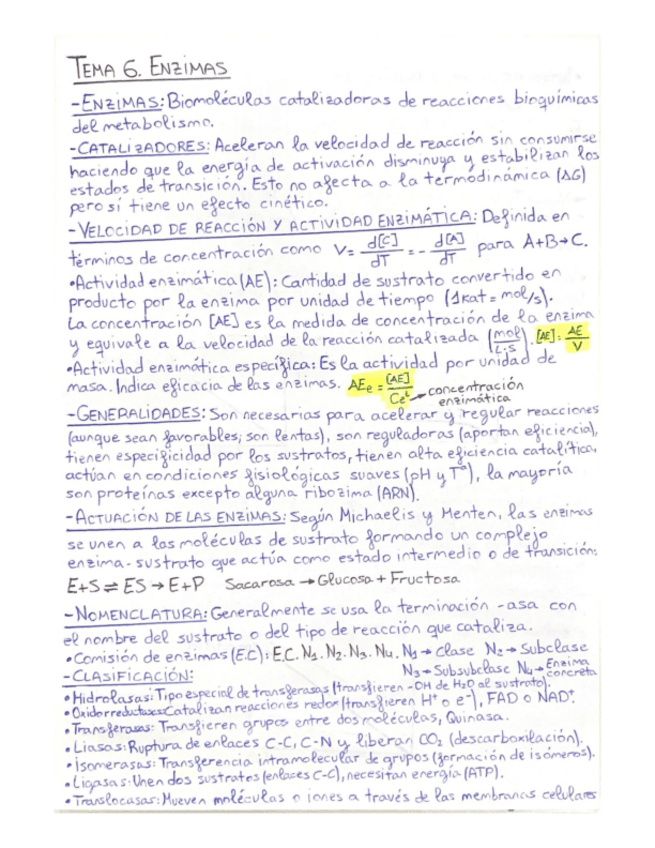 TEMA 6. ENZIMAS
-ENZIMAS: Biomoléculas catalizadoras de reacciones bioquímicas
del metabolismo.
-CATALIZADORES: Aceleran la velocidad de reacción sin consumirse
haciendo que la energía de activación disminuya y estabilizan los
estados de transición. Esto no afecta a la termodinámica (ΔG)
pero sí tiene un efecto cinético.
-VELOCIDAD DE REACCIÓN Y ACTIVIDAD ENZIMÁTICA: Definida en
términos de concentración como V= d[C]/dT = - d[A]/dT para A+B→C.
•Actividad enzimática (AE): Cantidad de sustrato convertido en
producto por la enzima por unidad de tiempo (1kat = mol/s).
La concentración [AE] es la medida de concentración de la enzima
y equivale a la velocidad de la reacción catalizada (mol/L·s). [AE]: AE/V
•Actividad enzimática específica: Es la actividad por unidad de
masa. Indica eficacia de las enzimas. AEe = [AE]/Ce → concentración enzimática
-GENERALIDADES: Son necesarias para acelerar y regular reacciones
(aunque sean favorables, son lentas), son reguladoras (aportan eficiencia),
tienen especificidad por los sustratos, tienen alta eficiencia catalítica,
actúan en condiciones fisiológicas suaves (pH y Tª), la mayoría
son proteínas excepto alguna ribozima (ARN).
-ACTUACIÓN DE LAS ENZIMAS: Según Michaelis y Menten, las enzimas
se unen a las moléculas de sustrato formando un complejo
enzima-sustrato que actúa como estado intermedio o de transición:
E+S ⇌ ES → E+P Sacarosa → Glucosa + Fructosa
-NOMENCLATURA: Generalmente se usa la terminación -asa con
el nombre del sustrato o del tipo de reacción que cataliza.
•Comisión de enzimas (E.C): E.C. N1. N2. N3. N4. N1→ Clase N2→ Subclase
N3→ Subsubclase N4→ Enzima concreta
-CLASIFICACIÓN:
•Hidrolasas: Tipo especial de transferasas (transfieren -OH de H2O al sustrato).
•Oxidorreductasas: Catalizan reacciones redox (transfieren H+ o e-), FAD o NAD+.
•Transferasas: Transfieren grupos entre dos moléculas, Quinasa.
•Liasas: Ruptura de enlaces C-C, C-N y liberan CO2 (descarboxilación).
•Isomerasas: Transferencia intramolecular de grupos (formación de isómeros).
•Ligasas: Unen dos sustratos (enlaces C-C), necesitan energía (ATP).
•Translocasas: Mueven moléculas o iones a través de las membranas celulares